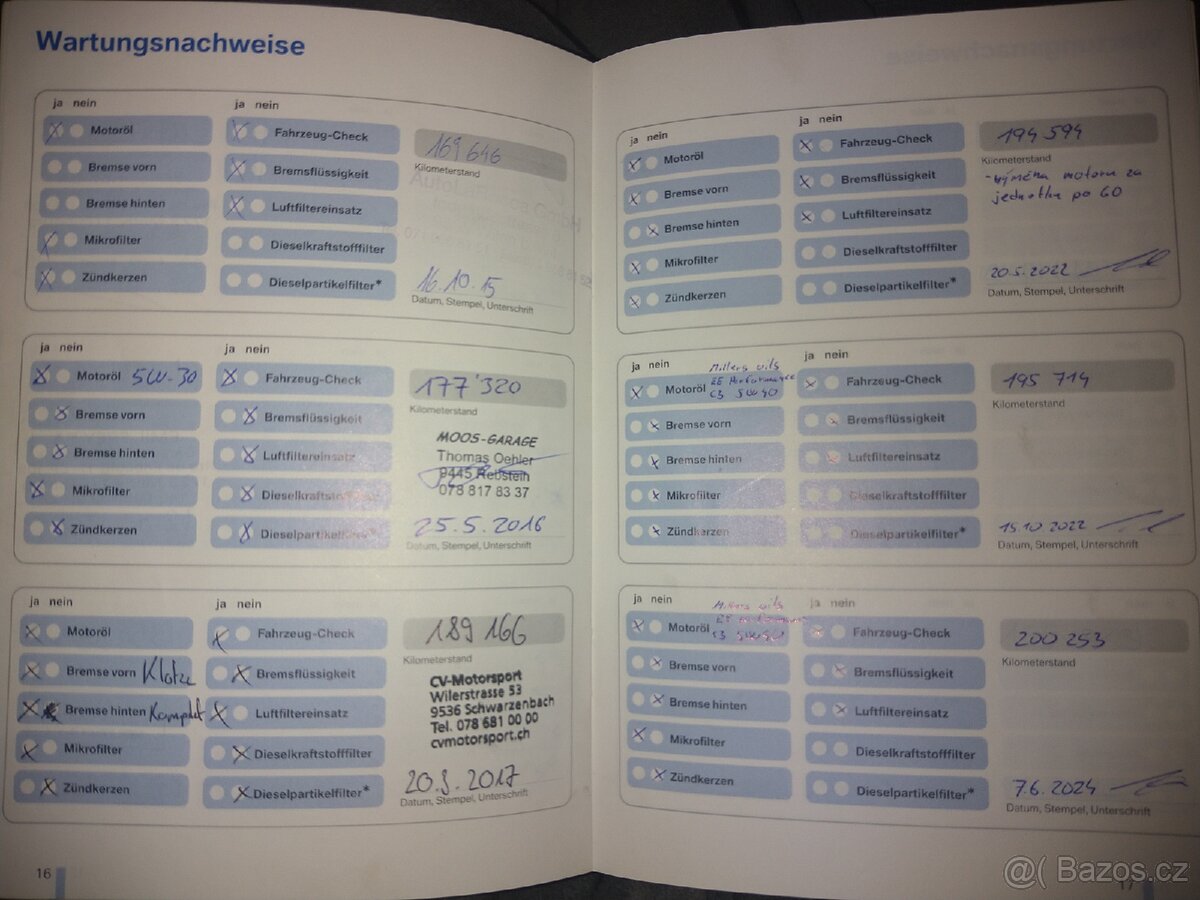 Wartungsnachweise
ja nein
ja nein
Motoröl
Bremse vorn
Bremse hinten
Mikrofilter
Zündkerzen
Fahrzeug-Check
Bremsflüssigkeit
Luftfiltereinsatz
Dieselkraftstofffilter
Dieselpartikelfilter*
169 646
Kilometerstand
16.10.15
Datum, Stempel, Unterschrift
ja nein
ja nein
Motoröl 5W-30
Bremse vorn
Bremse hinten
Mikrofilter
Zündkerzen
Fahrzeug-Check
Bremsflüssigkeit
Luftfiltereinsatz
Dieselkraftstofffilter
Dieselpartikelfilter*
177'320
Kilometerstand
MOOS-GARAGE
Thomas Oehler
9445 Rebstein
078 817 83 37
25.5.2016
Datum, Stempel, Unterschrift
ja nein
ja nein
Motoröl
Bremse vorn Klötze
Bremse hinten Komplet
Mikrofilter
Zündkerzen
Fahrzeug-Check
Bremsflüssigkeit
Luftfiltereinsatz
Dieselkraftstofffilter
Dieselpartikelfilter*
189 166
Kilometerstand
CV-Motorsport
Wilerstrasse 53
9536 Schwarzenbach
Tel. 078 681 00 00
cvmotorsport.ch
20.3.2017
Datum, Stempel, Unterschrift
16
ja nein
ja nein
Motoröl
Bremse vorn
Bremse hinten
Mikrofilter
Zündkerzen
Fahrzeug-Check
Bremsflüssigkeit
Luftfiltereinsatz
Dieselkraftstofffilter
Dieselpartikelfilter*
194 594
Kilometerstand
-výměna motoru za
jednotku po GO
20.5.2022
Datum, Stempel, Unterschrift
ja nein
ja nein
Millers oils
EE Performance
C3 5W40
Motoröl
Bremse vorn
Bremse hinten
Mikrofilter
Zündkerzen
Fahrzeug-Check
Bremsflüssigkeit
Luftfiltereinsatz
Dieselkraftstofffilter
Dieselpartikelfilter*
195 714
Kilometerstand
15.10.2022
Datum, Stempel, Unterschrift
ja nein
ja nein
Millers oils
EE Performance
C3 5W40
Motoröl
Bremse vorn
Bremse hinten
Mikrofilter
Zündkerzen
Fahrzeug-Check
Bremsflüssigkeit
Luftfiltereinsatz
Dieselkraftstofffilter
Dieselpartikelfilter*
200 253
Kilometerstand
7.6.2024
Datum, Stempel, Unterschrift
17
Bazos.cz